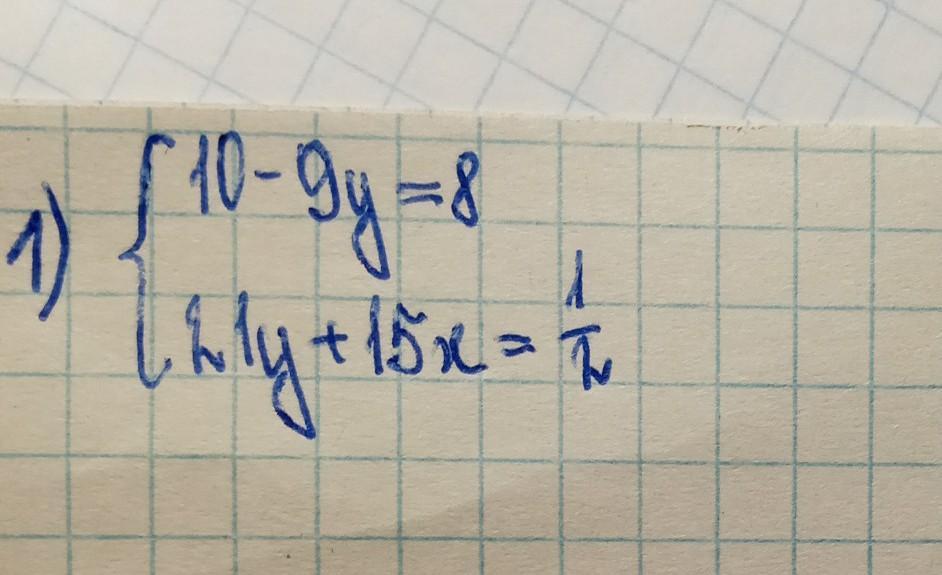 1) { 10 - 9y = 8
21y + 15x = 1/2